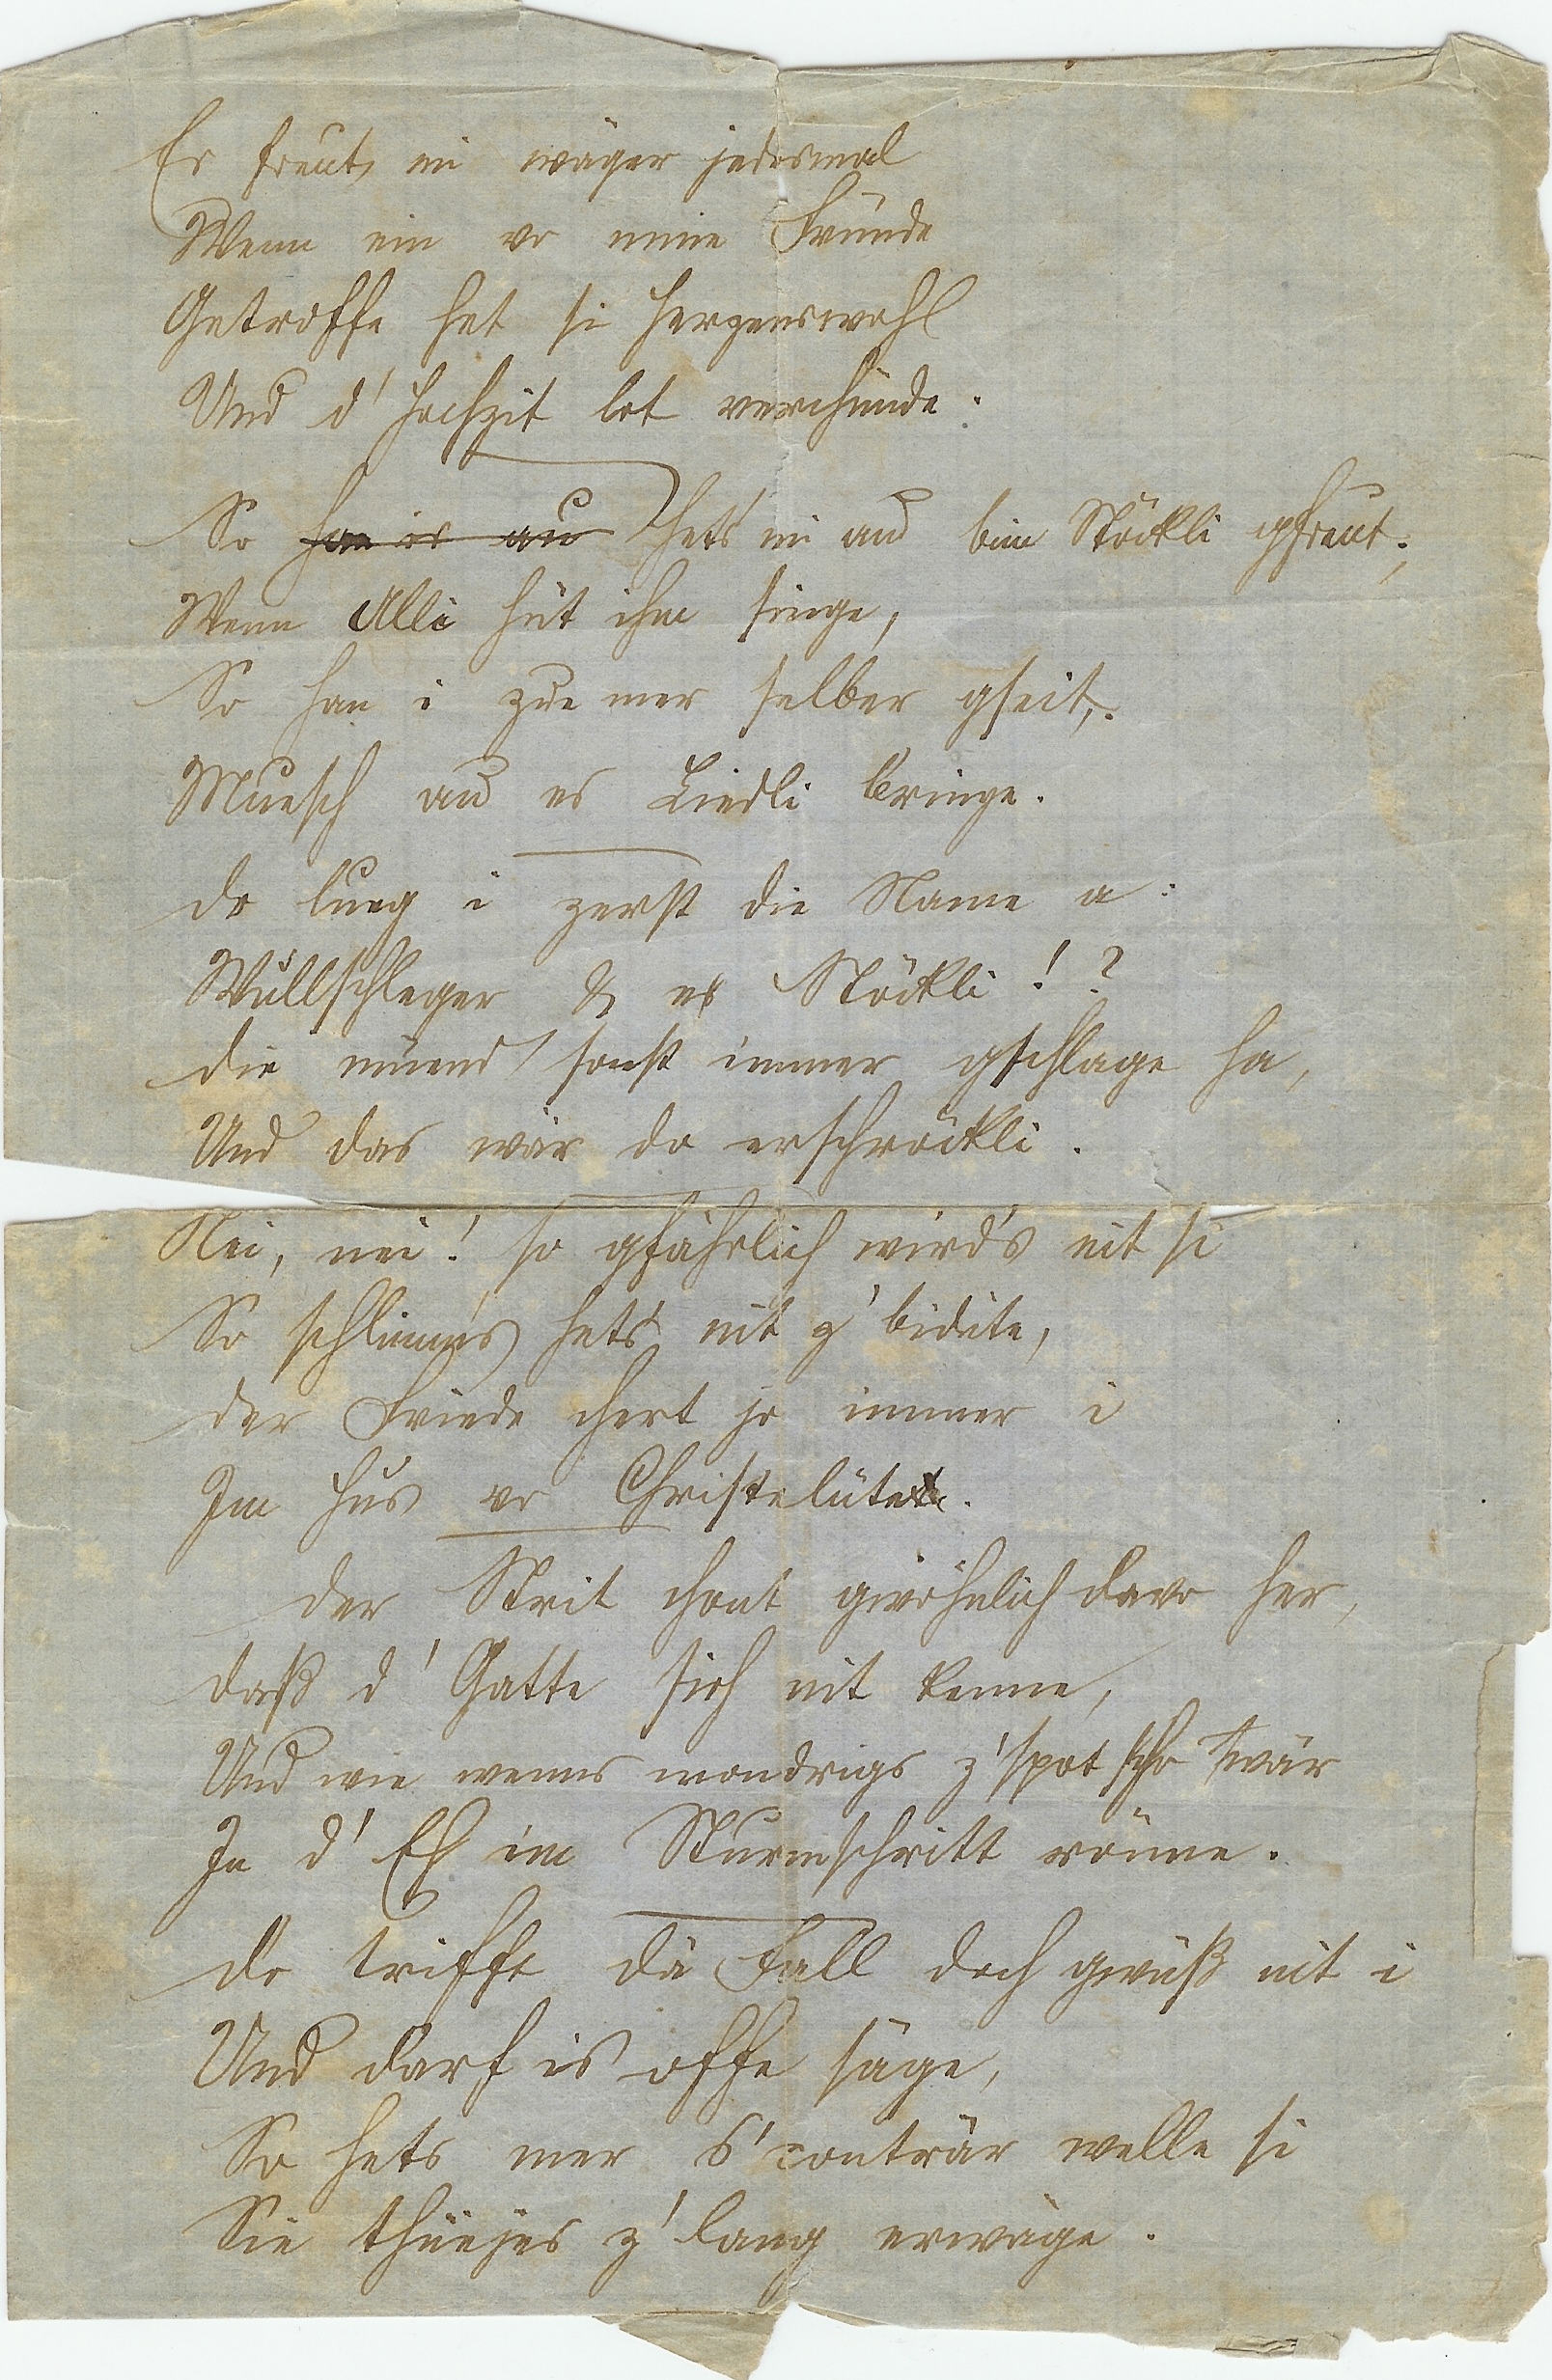 Es freut mi wäger jedesmal
Wenn ein vo mine Fründe
Getroffe het si Herzenswahl
Und d' Hochzit lot verchünde.
So han is au hets mi au bim Stöckli gfreut;
Wenn Alli hüt ihm singe,
So han i zue mer selber gseit,
Muesch au es Liedli bringe.
Do lueg i zerst die Name a:
Wullschleger & es Stöckli!?
Die müend sonst immer gschlage ha,
Und das wär do erschröckli.
Nei, nei! so gfährlich wird's nit si
So schlimm's hets nit z' bidüte,
Der Friede chert jo immer i
Im Hus vo Christelüte.
Der Strit chont gwöhnlich davo her,
Daß d' Gatte sich nit kenne,
Und wie wenns mondrigs z' spot scho wär
In d' Eh im Sturmschritt rönne.
Do trifft dä Fall doch gwüß nit i
Und darf is offe säge,
So hets mer s' conträr welle si
Sie thüejes z' lang erwäge.